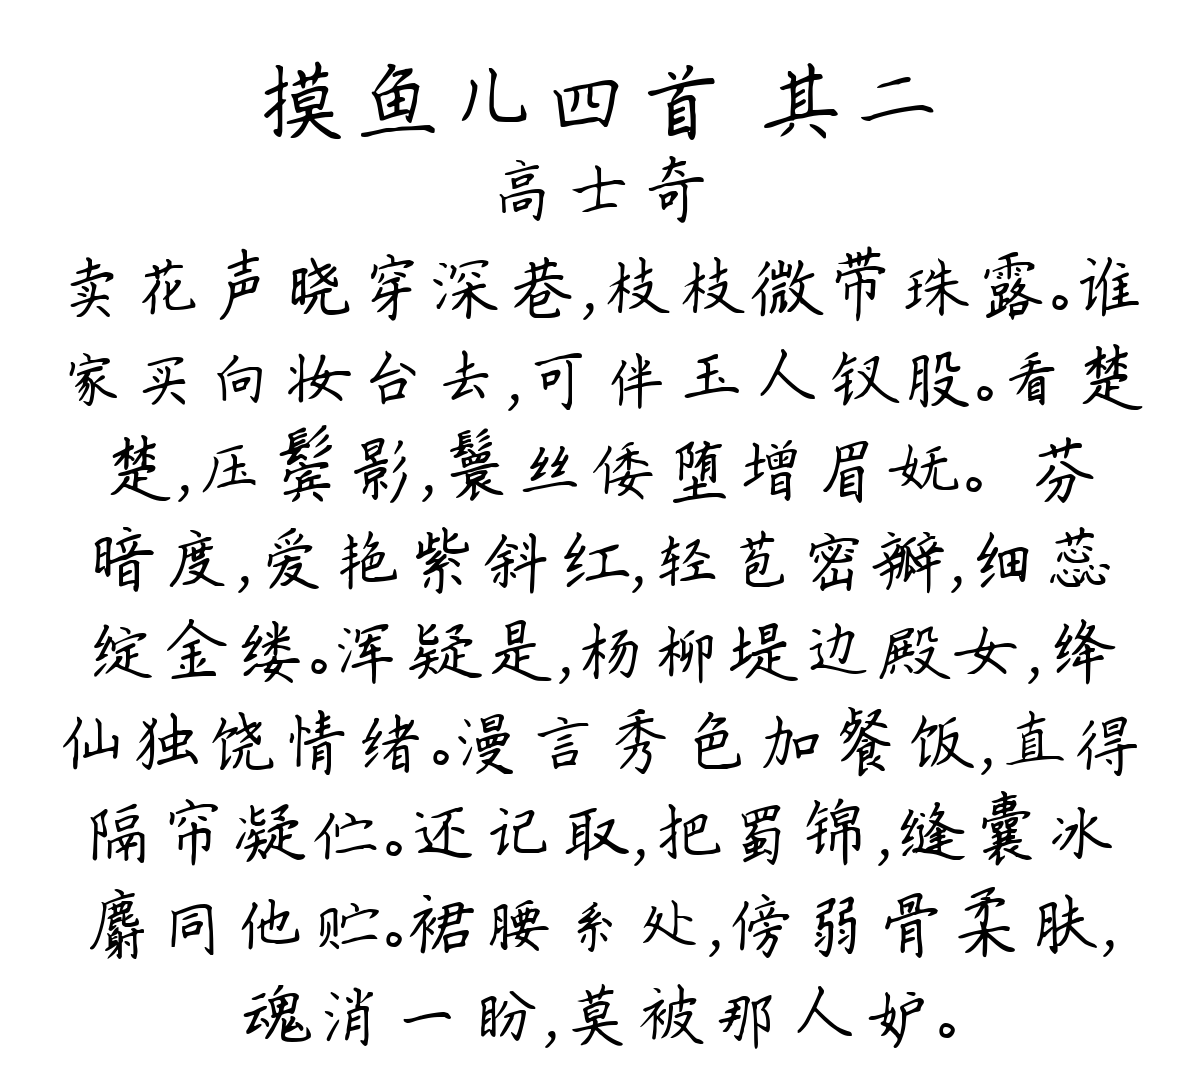 摸鱼儿四首 其二
高士奇
卖花声晓穿深巷,枝枝微带珠露。谁
家买向妆台去,可伴玉人钗股。看楚
楚,压鬓影,鬟丝倭堕增眉妩。 芬
暗度,爱艳紫斜红,轻苞密瓣,细蕊
绽金缕。浑疑是,杨柳堤边殿女,绛
仙独饶情绪。漫言秀色加餐饭,直得
隔帘凝伫。还记取,把蜀锦,缝囊冰
麝同他贮。裙腰系处,傍弱骨柔肤,
魂消一盼,莫被那人妒。